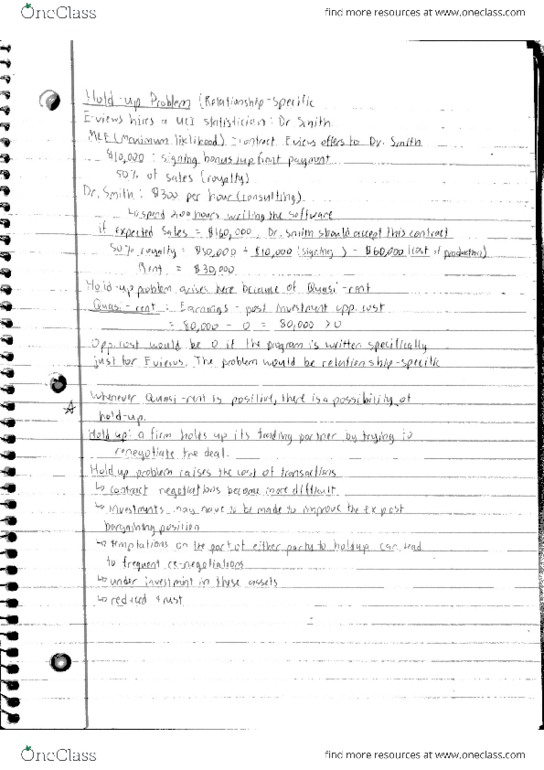 OneClass
find more resources at www.oneclass.com
Hold-up Problem (Relationship-Specific
E-views hires a UCI statistician: Dr Smith
MLE (Maximum liklihood) contract Eviews offers to Dr. Smith
$10,000 : signing bonus/upfront payment
50% of sales (royalty)
Dr. Smith : $300 per hour (consulting)
↳ spend 200 hours writing the software
if Expected Sales = $160,000, Dr. Smith should accept this contract
50% royalty = $80,000 + $10,000 (signing) - $60,000 (cost of production)
Rent = $30,000
Hold-up problem arises here because of Quasi-rent
Quasi-rent : Earnings - post investment opp. cost
= 80,000 - 0 = 80,000 > 0
Opp. cost would be 0 if the program is written specifically
just for Eviews. The problem would be relationship-specific
Whenever Quasi-rent is positive, there is a possibility of
hold-up.
Hold up: a firm holds up its trading partner by trying to
renegotiate the deal.
Hold up problem raises the cost of transactions
↳ contract negotiations become more difficult
↳ investments may have to be made to improve the ex post
bargaining position
↳ temptations on the part of either party to holdup can lead
to frequent re-negotiations
↳ under investment in these assets
↳ reduced trust
OneClass
find more resources at www.oneclass.com